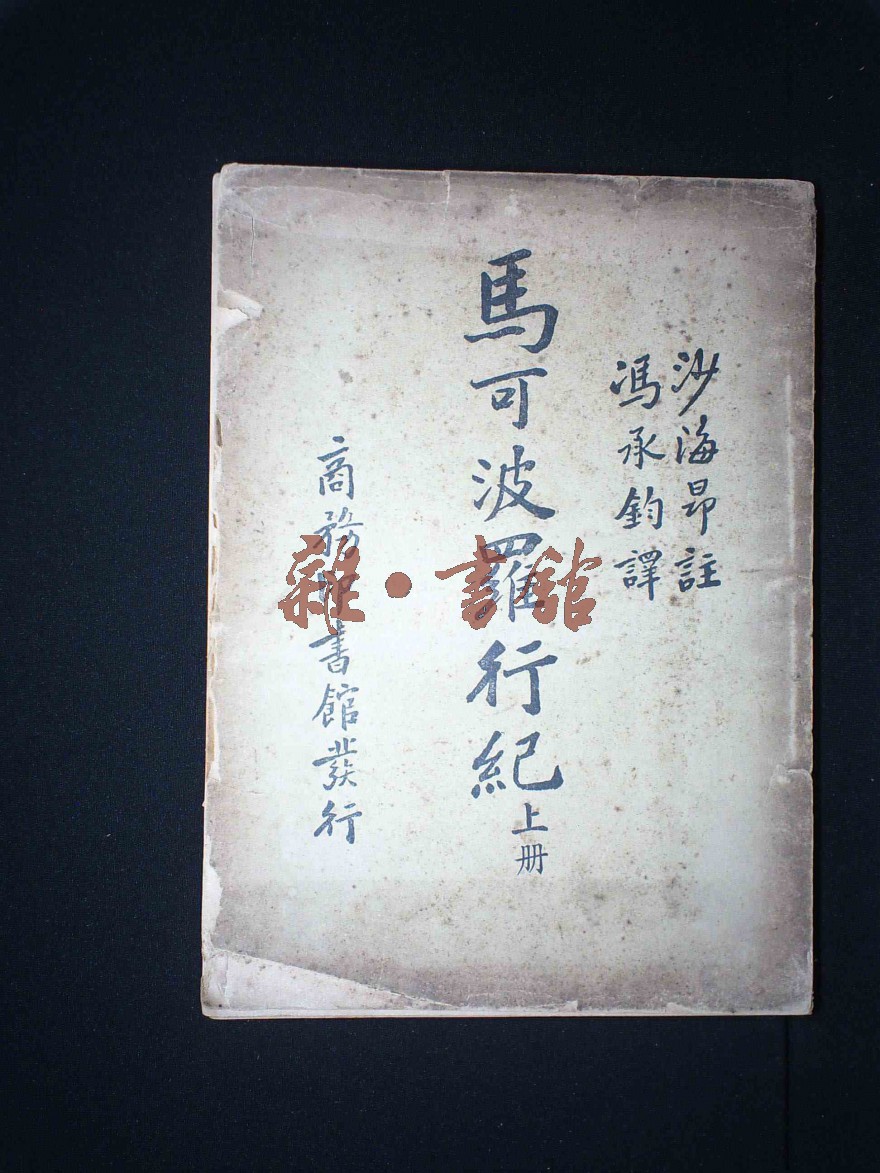 沙海昂註
馮承鈞譯
馬可波羅行紀上册
商務印書館發行
雜·書館